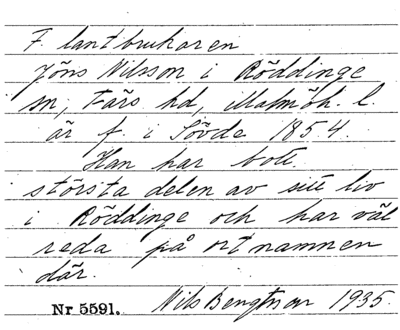 F. lantbrukaren
Jöns Nilsson i Röddinge
sn, Färs hd, Malmöh. l.
är f. i Sövde 1854.
Han har bott
största delen av sitt liv
i Röddinge och har väl
reda på ortnamnen
där.
Nr 5591. Nils Bengtsson 1935.